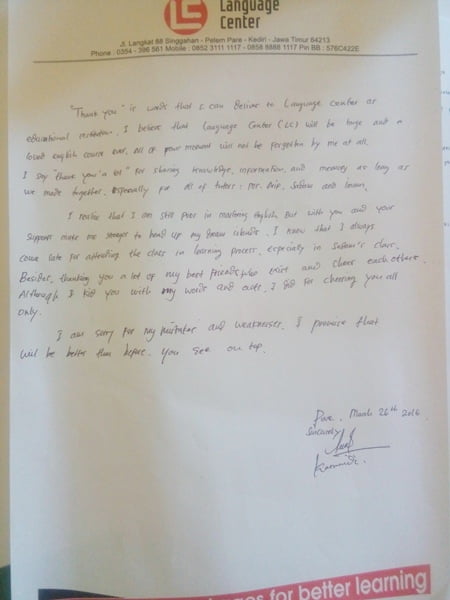 Language
Center
Jl. Langkat 88 Singgahan - Pelem Pare - Kediri - Jawa Timur 64213
Phone : 0354 - 396 561 Mobile : 0852 3111 1117 - 0858 8888 1117 Pin BB : 576C422E
"Thank you" is words that I can deliver to Language center as
educational institution. I believe that Language Center (LC) will be large and a
loved english course ever. All of your moment will not be forgotten by me at all.
I say "thank you a lot" for sharing knowledge, information, and memory as long as
we made together. Especially for all of tutors : Mr. Arip, and
I realize that I am still poor in mastering English. But with you and your
supports make me stronger to build up my dream . I know that I always
come late for attending the class in learning process, especially in class.
Besides, thanking you a lot of my best friends who exist and cheer each others.
Although I kid you with my words and acts. I did for cheering you all
only.
I am sorry for my mistakes and weaknesses. I promise that
will be better than before. You see on top.
Pare, March 26th 2016
Sincerely
for better learning